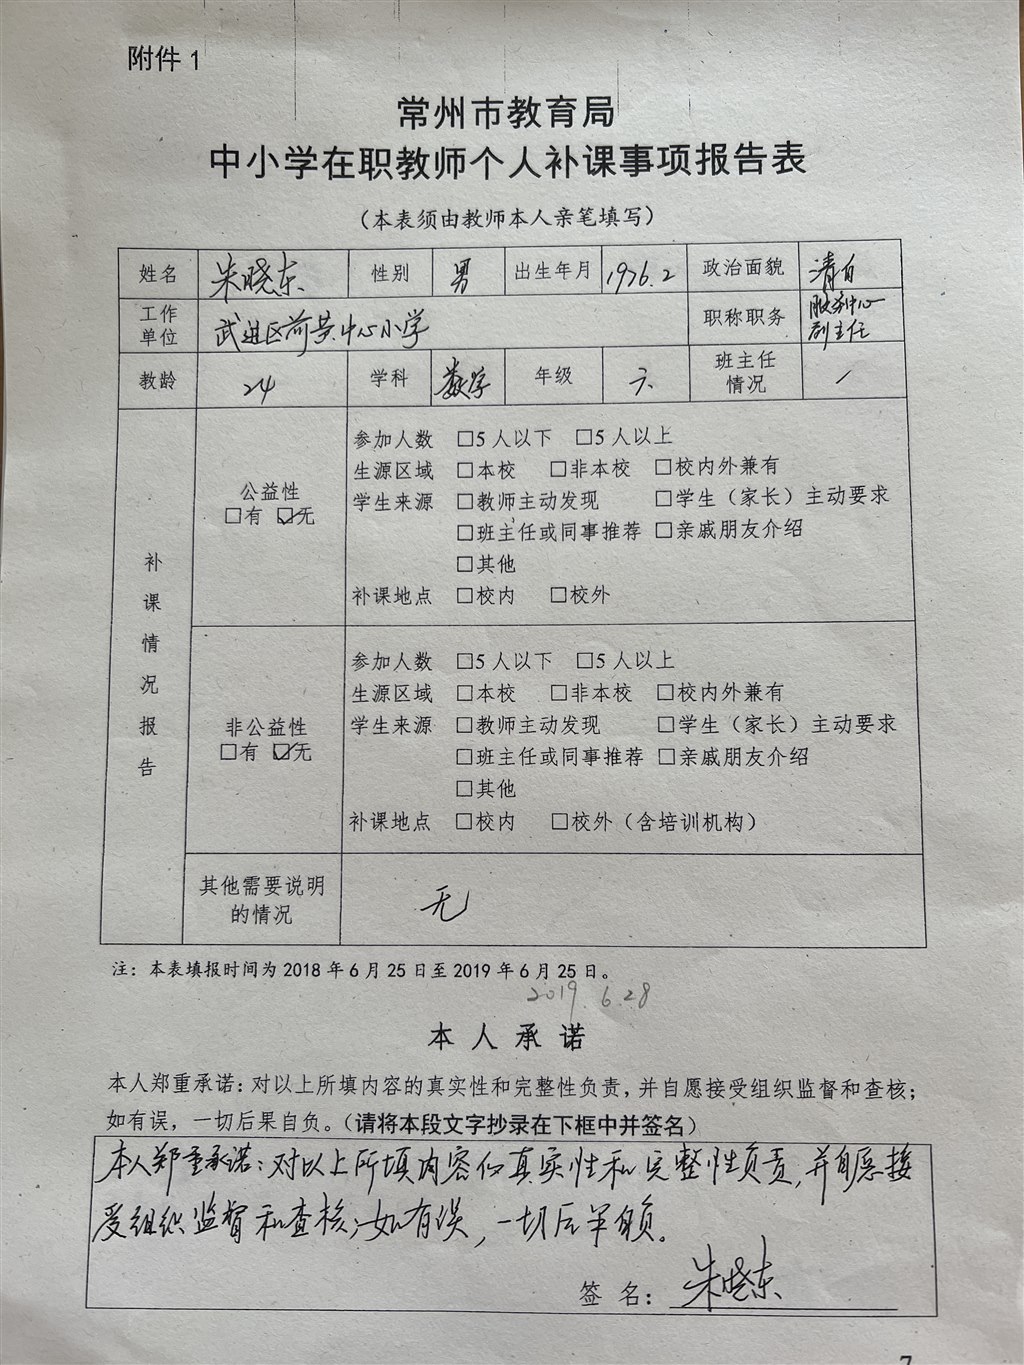 附件1
常州市教育局
中小学在职教师个人补课事项报告表
（本表须由教师本人亲笔填写）
姓名 朱晓东 性别 男 出生年月 1976.2 政治面貌 清白
工作单位 武进区前黄中心小学 职称职务 服务中心副主任
教龄 24 学科 数学 年级 六 班主任情况 /
补课情况报告
公益性
□有 ☑无
参加人数 □5人以下 □5人以上
生源区域 □本校 □非本校 □校内外兼有
学生来源 □教师主动发现 □学生（家长）主动要求
□班主任或同事推荐 □亲戚朋友介绍
□其他
补课地点 □校内 □校外
非公益性
□有 ☑无
参加人数 □5人以下 □5人以上
生源区域 □本校 □非本校 □校内外兼有
学生来源 □教师主动发现 □学生（家长）主动要求
□班主任或同事推荐 □亲戚朋友介绍
□其他
补课地点 □校内 □校外（含培训机构）
其他需要说明的情况 无
注：本表填报时间为2018年6月25日至2019年6月25日。
2019.6.28
本人承诺
本人郑重承诺：对以上所填内容的真实性和完整性负责，并自愿接受组织监督和查核；
如有误，一切后果自负。（请将本段文字抄录在下框中并签名）
本人郑重承诺：对以上所填内容的真实性和完整性负责，并自愿接
受组织监督和查核；如有误，一切后果自负。
签名：朱晓东
7